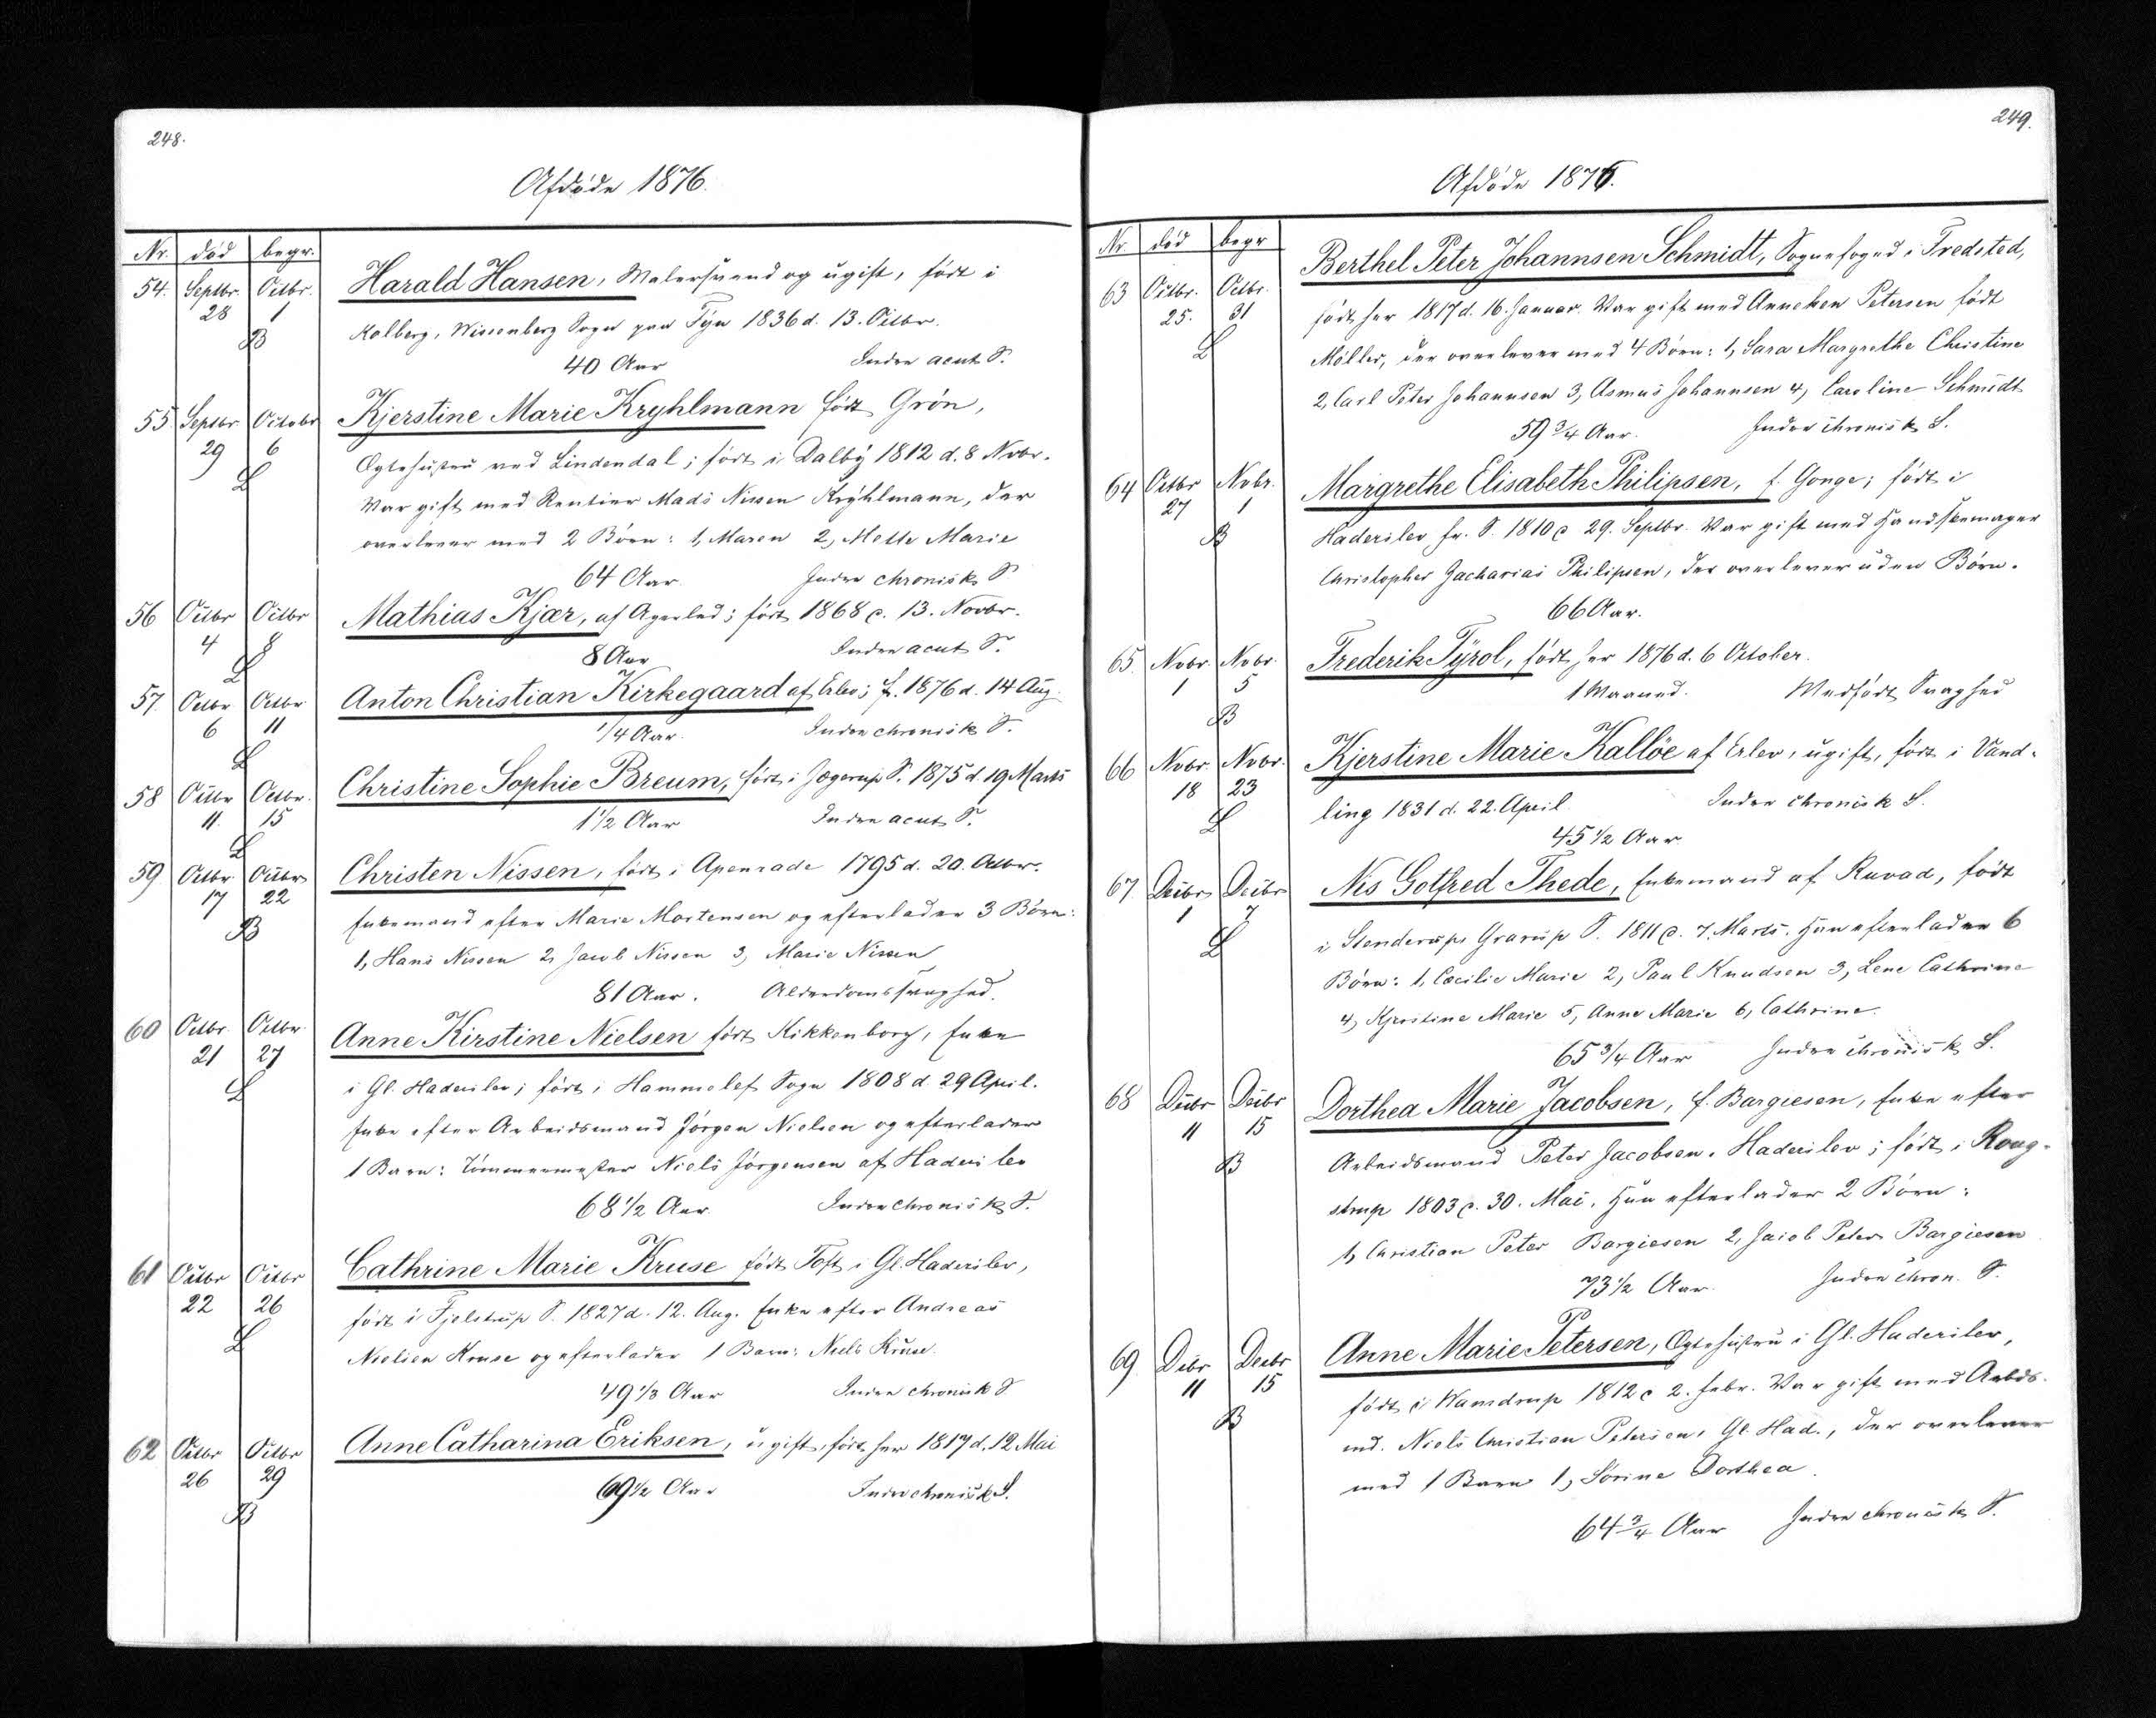 248.
Afdøde 1876.
Nr. død begr.
54. Septbr. 28 Octbr. 1 B
Harald Hansen, Malersvend og ugift, født i
Kolberg, Wissenberg Sogn paa Fyn 1836 d. 13. Octbr.
40 Aar Indre acut S.
55. Septbr 29 Octobr 6 L
Kjerstine Marie Kryhlmann født Grön,
Ægtehustru ved Lindendal; født i Dalby 1812 d. 8 Nvbr.
Var gift med Rentier Mads Nissen Kryhlmann, der
overlever med 2 Børn: 1, Maren 2, Mette Marie
64 Aar Indre chronisk S
56 Octbr 4 Octbr 8 L
Mathias Kjær, af Agerled; født 1868 d. 13. Novbr.
8 Aar Indre acut S.
57. Octbr 6 Octbr 11 L
Anton Christian Kirkegaard af Erlev; f. 1876 d. 14 Aug.
1/4 Aar. Indre chronisk S.
58 Octbr 11. Octbr. 15 L
Christine Sophie Breum, født i Jægerup S. 1875 d. 19 Marts
1 1/2 Aar Indre acut S.
59 Octbr. 17 Octbr 22 B
Christen Nissen, født i Apenrade 1795 d. 20. Octbr.
Enkemand efter Marie Mortensen og efterlader 3 Børn:
1, Hans Nissen 2, Jacob Nissen 3, Marie Nissen
81 Aar. Alderdomssvaghed.
60 Octbr. 21 Octbr. 27 L
Anne Kirstine Nielsen født Kikkenborg, Enke
i Gl. Haderslev; født i Hammelef Sogn 1808 d. 29 April.
Enke efter Arbeidsmand Jörgen Nielsen og efterlader
1 Barn: Tömmermester Niels Jörgensen af Haderslev
68 1/2 Aar. Indre chronisk S.
61 Octbr 22 Octbr 26 L
Cathrine Marie Kruse født Toft i Gl. Haderslev,
født i Fjelstrup S. 1827 d. 12. Aug. Enke efter Andreas
Nielsen Kruse og efterlader 1 Barn: Niels Kruse.
49 1/3 Aar Indre chronisk S
62 Octbr 26 Octbr 29 B
Anne Catharina Eriksen, ugift, født her 1817 d. 12 Mai
69 1/2 Aar Indre chronisk S.
249.
Afdøde 1876.
Nr. død begr
63 Octbr. 25. Octbr. 31 L
Berthel Peter Johannsen Schmidt, Sognefoged i Fredsted,
født her 1817 d. 16. Januar. Var gift med Anneken Petersen født
Möller, der overlever med 4 Börn: 1, Sara Margrethe Christine
2, Carl Peter Johannsen 3, Asmus Johannsen 4, Caroline Schmidt
59 3/4 Aar. Indre chronisk S.
64 Octbr 27 Nvbr. 1 B
Margrethe Elisabeth Philipsen, f. Gonge; født i
Haderslev fr. S. 1810 d 29. Septbr. Var gift med Handskemager
Christopher Zacharias Philipsen, der overlever uden Børn.
66 Aar.
65. Nvbr. 1 Nvbr. 5 B
Frederik Tyrol, født her 1876 d. 6 October.
1 Maaned. Medfødt Svaghed
66 Nvbr. 18 Nvbr. 23 L
Kjerstine Marie Kallöe af Erlev, ugift, født i Vand-
ling 1831 d. 22. April. Indre chronisk S.
45 1/2 Aar
67 Decbr 1 Decbr 7 L
Nis Gotfred Thede, Enkemand af Ravad, født
i Stenderup, Grarup S. 1811 d. 7. Marts. Han efterlader 6
Børn: 1, Cæcilie Marie 2, Paul Knudsen 3, Lene Cathrine
4, Kjerstine Marie 5, Anne Marie 6, Cathrine.
65 3/4 Aar Indre chronisk S.
68 Decbr 11 Decbr 15 B
Dorthea Marie Jacobsen, f. Bargiesen, Enke efter
Arbeidsmand Peter Jacobsen, Haderslev; født i Roug-
strup 1803 d. 30. Mai. Hun efterlader 2 Børn:
1, Christian Peter Bargiesen 2, Jacob Peter Bargiesen
73 1/2 Aar. Indre chron. S.
69. Dcbr 11 Decbr 15 B
Anne Marie Petersen, Ægtehustru i Gl. Haderslev,
født i Wamdrup 1812 d 2. Febr. Var gift med Arbds.
md. Niels Christian Petersen, Gl. Had., der overlever
med 1 Barn 1, Sörine Dorthea.
64 3/4 Aar Indre chronisk S.